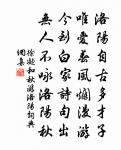 洛陽自古多才子
唯愛春風爛漫遊
今到白家詩句出
無人不咏洛陽秋
徐凝和秋遊洛陽詞典
網集